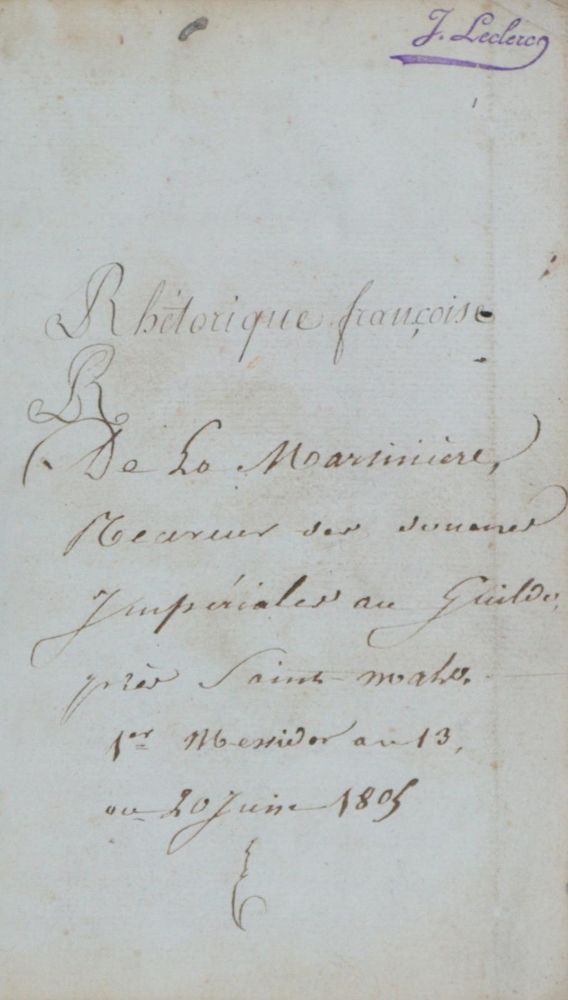 J. Leclerc
Rhétorique françoise
R
De La Martinière,
Receveur des douanes
Impériales au Guildo,
près Saint-malo.
1er Messidor an 13,
ou 20 Juin 1805